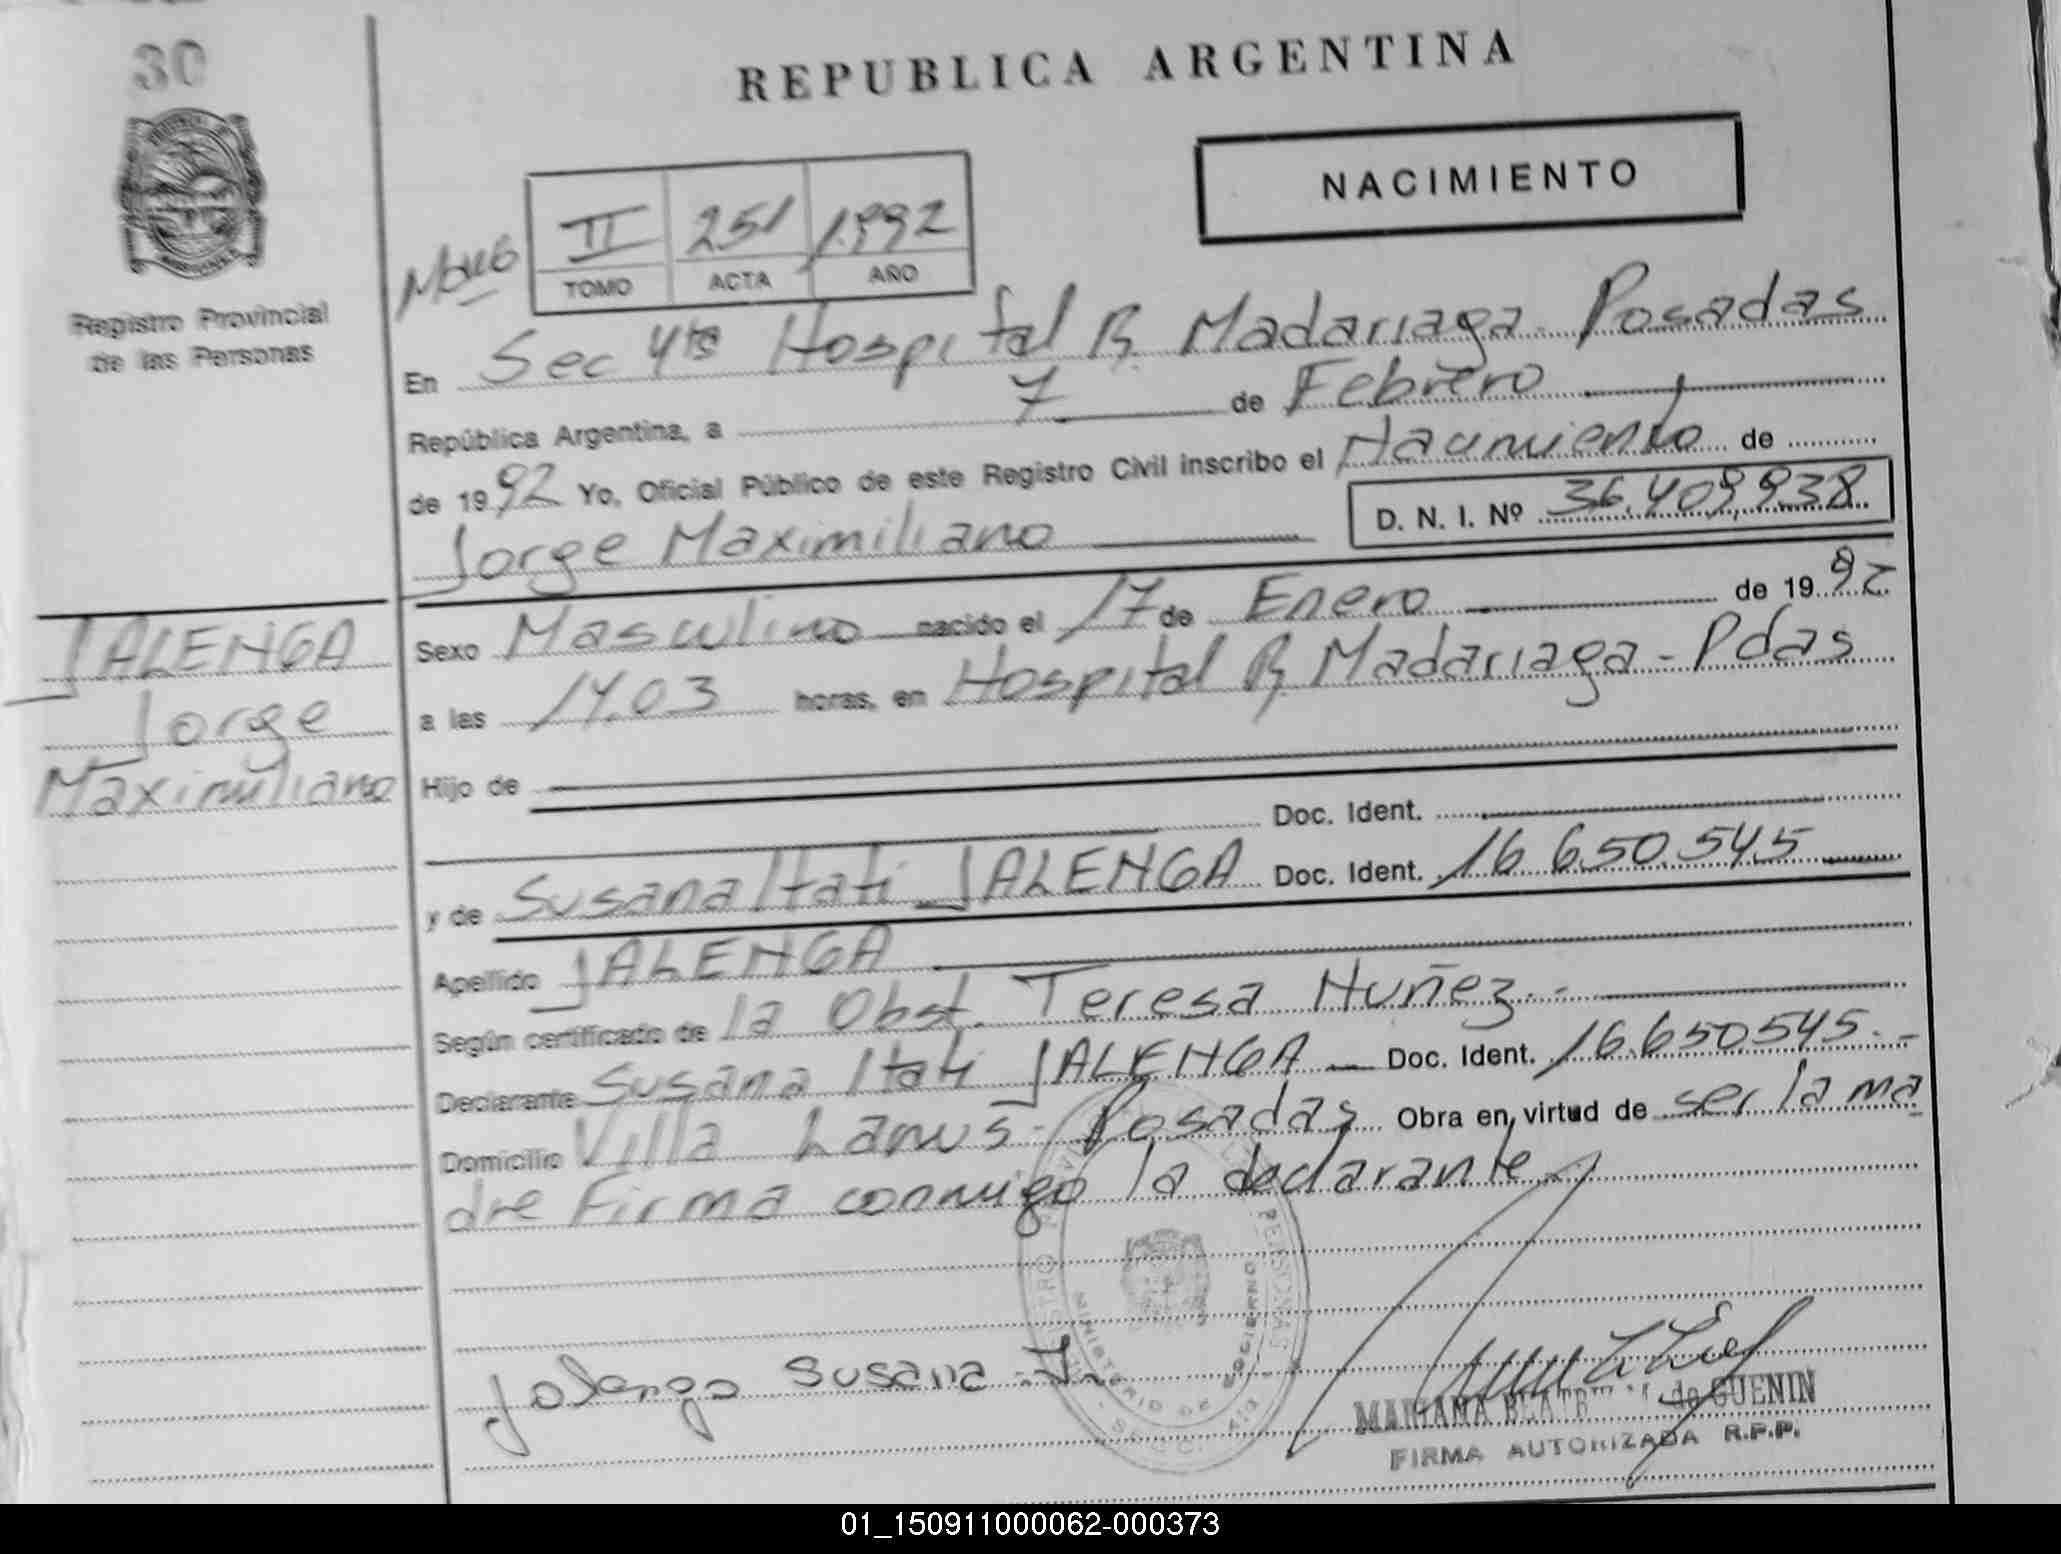 30
REPUBLICA ARGENTINA
NACIMIENTO
II 251 1.992
TOMO ACTA AÑO
Registro Provincial
de las Personas
En Sec 4ta Hospital R. Madariaga - Posadas
República Argentina, a 7 de Febrero
de 1992 Yo, Oficial Público de este Registro Civil inscribo el Nacimiento de
Jorge Maximiliano D. N. I. Nº 36.409.938
JALENGA
Jorge
Maximiliano
Sexo Masculino nacido el 17 de Enero de 1992
a las 14.03 horas, en Hospital R. Madariaga - Pdas
Hijo de
Doc. Ident.
y de Susana Itati JALENGA Doc. Ident. 16.650.545
Apellido JALENGA
Según certificado de la Obst. Teresa Nuñez.-
Declarante Susana Itati JALENGA Doc. Ident. 16.650.545.-
Domicilio Villa Lanus - Posadas Obra en virtud de ser la ma
dre Firma conmigo la declarante
Jalenga Susana I.
MARIANA de GUENIN
FIRMA AUTORIZADA R.P.P.
MINISTERIO DE GOBIERNO
01_150911000062-000373